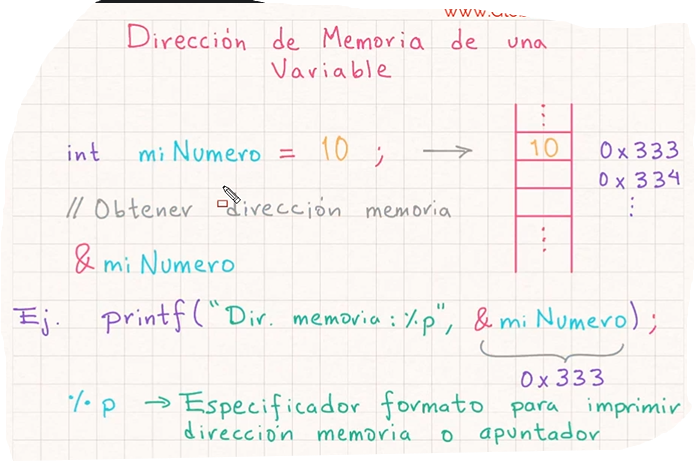 Dirección de Memoria de una
Variable
int miNumero = 10 ; → 10 0x333
0x334
// Obtener dirección memoria
& miNumero
Ej. printf("Dir. memoria: %p", & miNumero);
0x333
%p → Especificador formato para imprimir
dirección memoria o apuntador